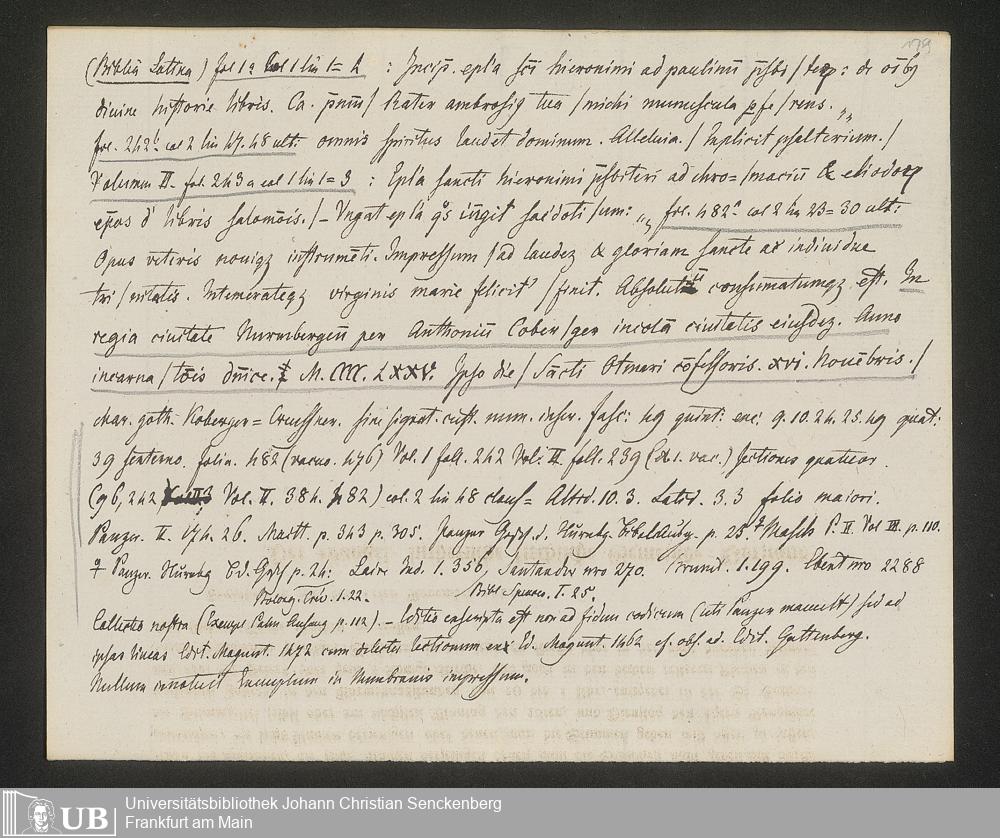 179
(Biblia Latina) fol 1a Col 1 lin 1= 2 : Incip. epl'a sci hieronimi ad paulinu pbrē / de oib9
diuine historie libris. Ca. pmu / Frater ambrosi9 tua / michi munuscula pfe / rens. „
fol. 242b col 2 lin 47. 48 ult. omnis spiritus laudet dominum. Alleluia. / Explicit psalterium. /
Volumen II. fol. 243 a col 1 lin 1=3 : Epl'a sancti hieronimi pbiteri ad chro= / maciu & eliodorū
epos d' libris salomois. /– Ungat epl'a qs iūgit sacdoti / um: „ fol. 482a col 2 lin 23=30 ult:
Opus veteris nouiqz instrumēti. Impressum / ad laudez & gloriam sancte ac indiuidue
tri / nitatis. Intemerateqz virginis marie felicit' / finit. Absolutū consumatumqz est. In
regia ciuitate Nurmbergēn per Anthoniū Cober / ger incolā ciuitatis eiusdez. Anno
incarna / tōis dnice. M. CCCC. LXXV. Ipso die / Sācti Otmari cōfessoris. xvi. Nouēbris. /
char. goth. Koberger= Creussner. sine signat. cust. num. fasc: 49 quint: exc. 9. 10. 24. 25. quat:
39 senterno. folia. 482 (vacuo. 476) Vol. 1 foll. 242 Vol: II foll. 239 (Et 1. vac.) sectiones quatuor
(96, 242 Vol. II. 384. 482) col. 2 lin 48 claus= Altid. 10. 3. Latid. 3. 3 folio maiori.
Panzer. II. 174. 26. Maitt. p. 343 p. 305. Panzer Gesch. d. Nürnbg. BibelAusg. p. 25. Masch P. II. Vol III. p. 110.
Panzer. Nürnbg Bd. Gesch p. 24: Laire Ind. 1. 356, Santander nro 270. Brunet. 1. 199. Ebert nro 2288
Bibl Spenc. T. 25.
Collectio nostra – Editio exscripta est non ad fidem codicum (uti Panzer mauult) sed ad
ipsas lineas Edit. Mogunt. 1472 cum delectu lectionum ex Ed. Mogunt. 1462 cf. obs. ad. Edit. Guttenberg.
Nullum innotuit Exemplum in Membranis impressum.
UB
Universitätsbibliothek Johann Christian Senckenberg
Frankfurt am Main